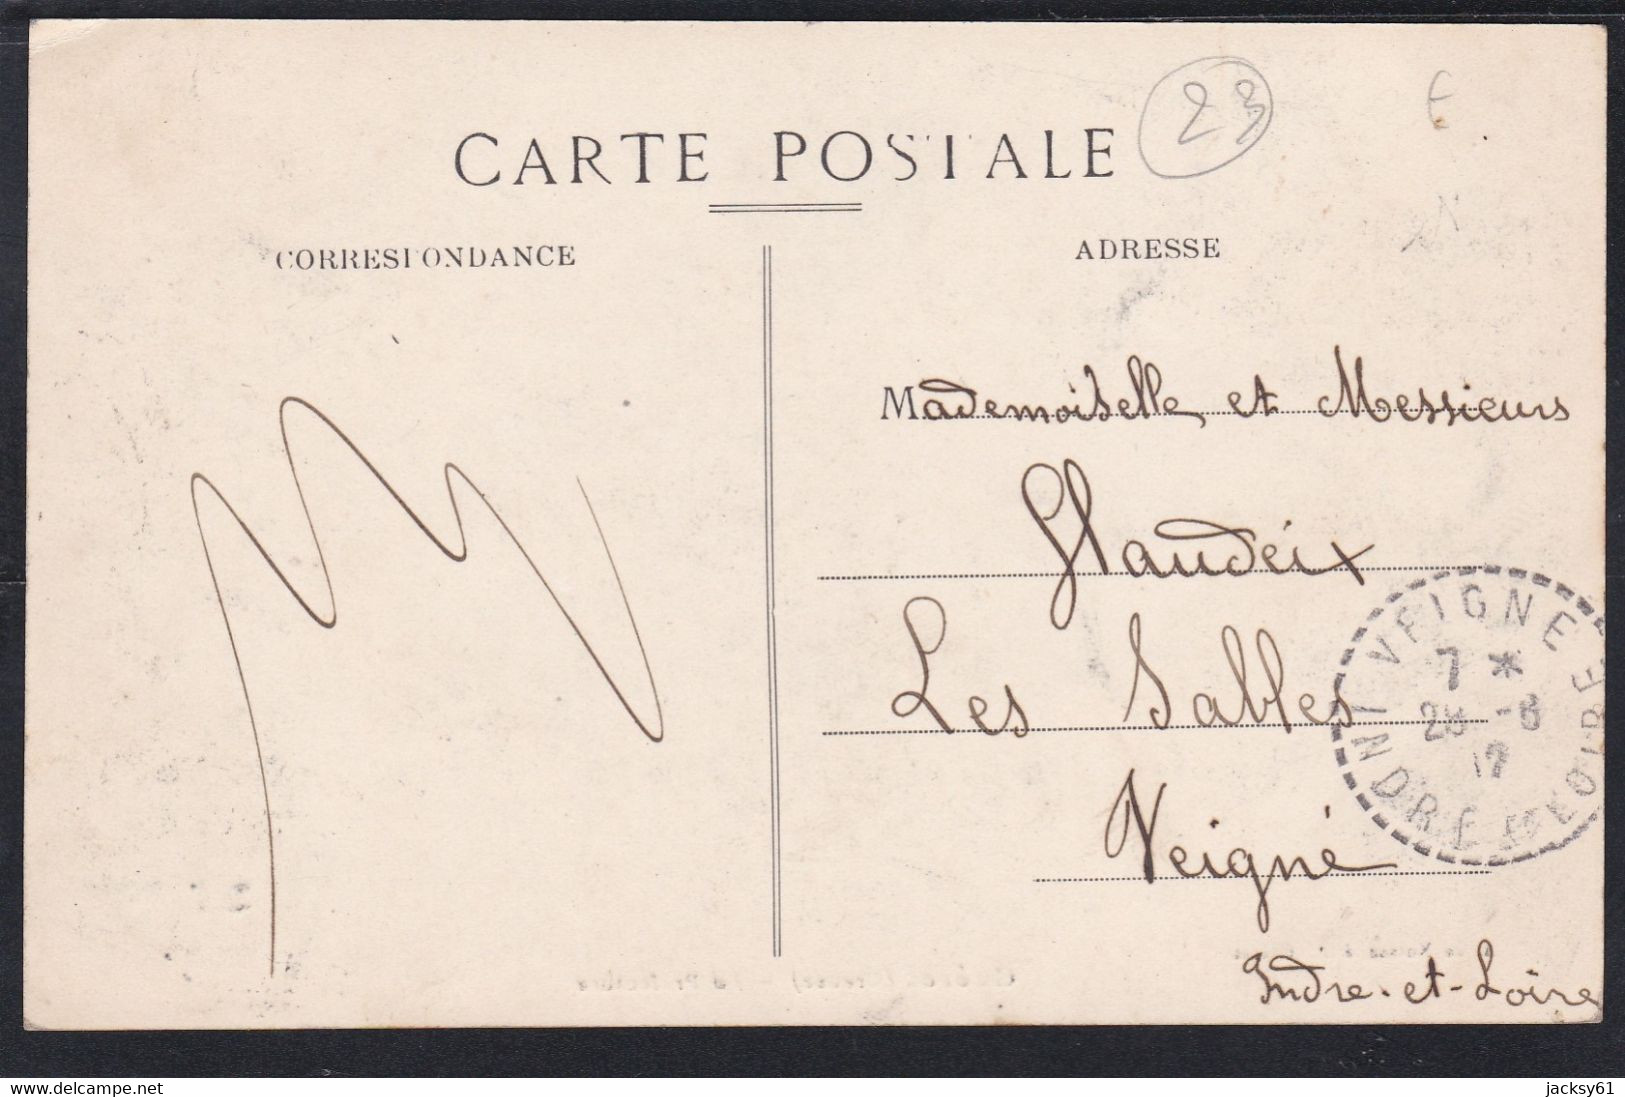 23
E
CARTE POSTALE
CORRESPONDANCE
ADRESSE
Mademoiselle et Messieurs
Glaudeix
Les Sables
Veigné
Indre-et-Loire
VEIGNE
7 *
28 -8
17
INDRE ET LOIRE
www.delcampe.net
jacksy61